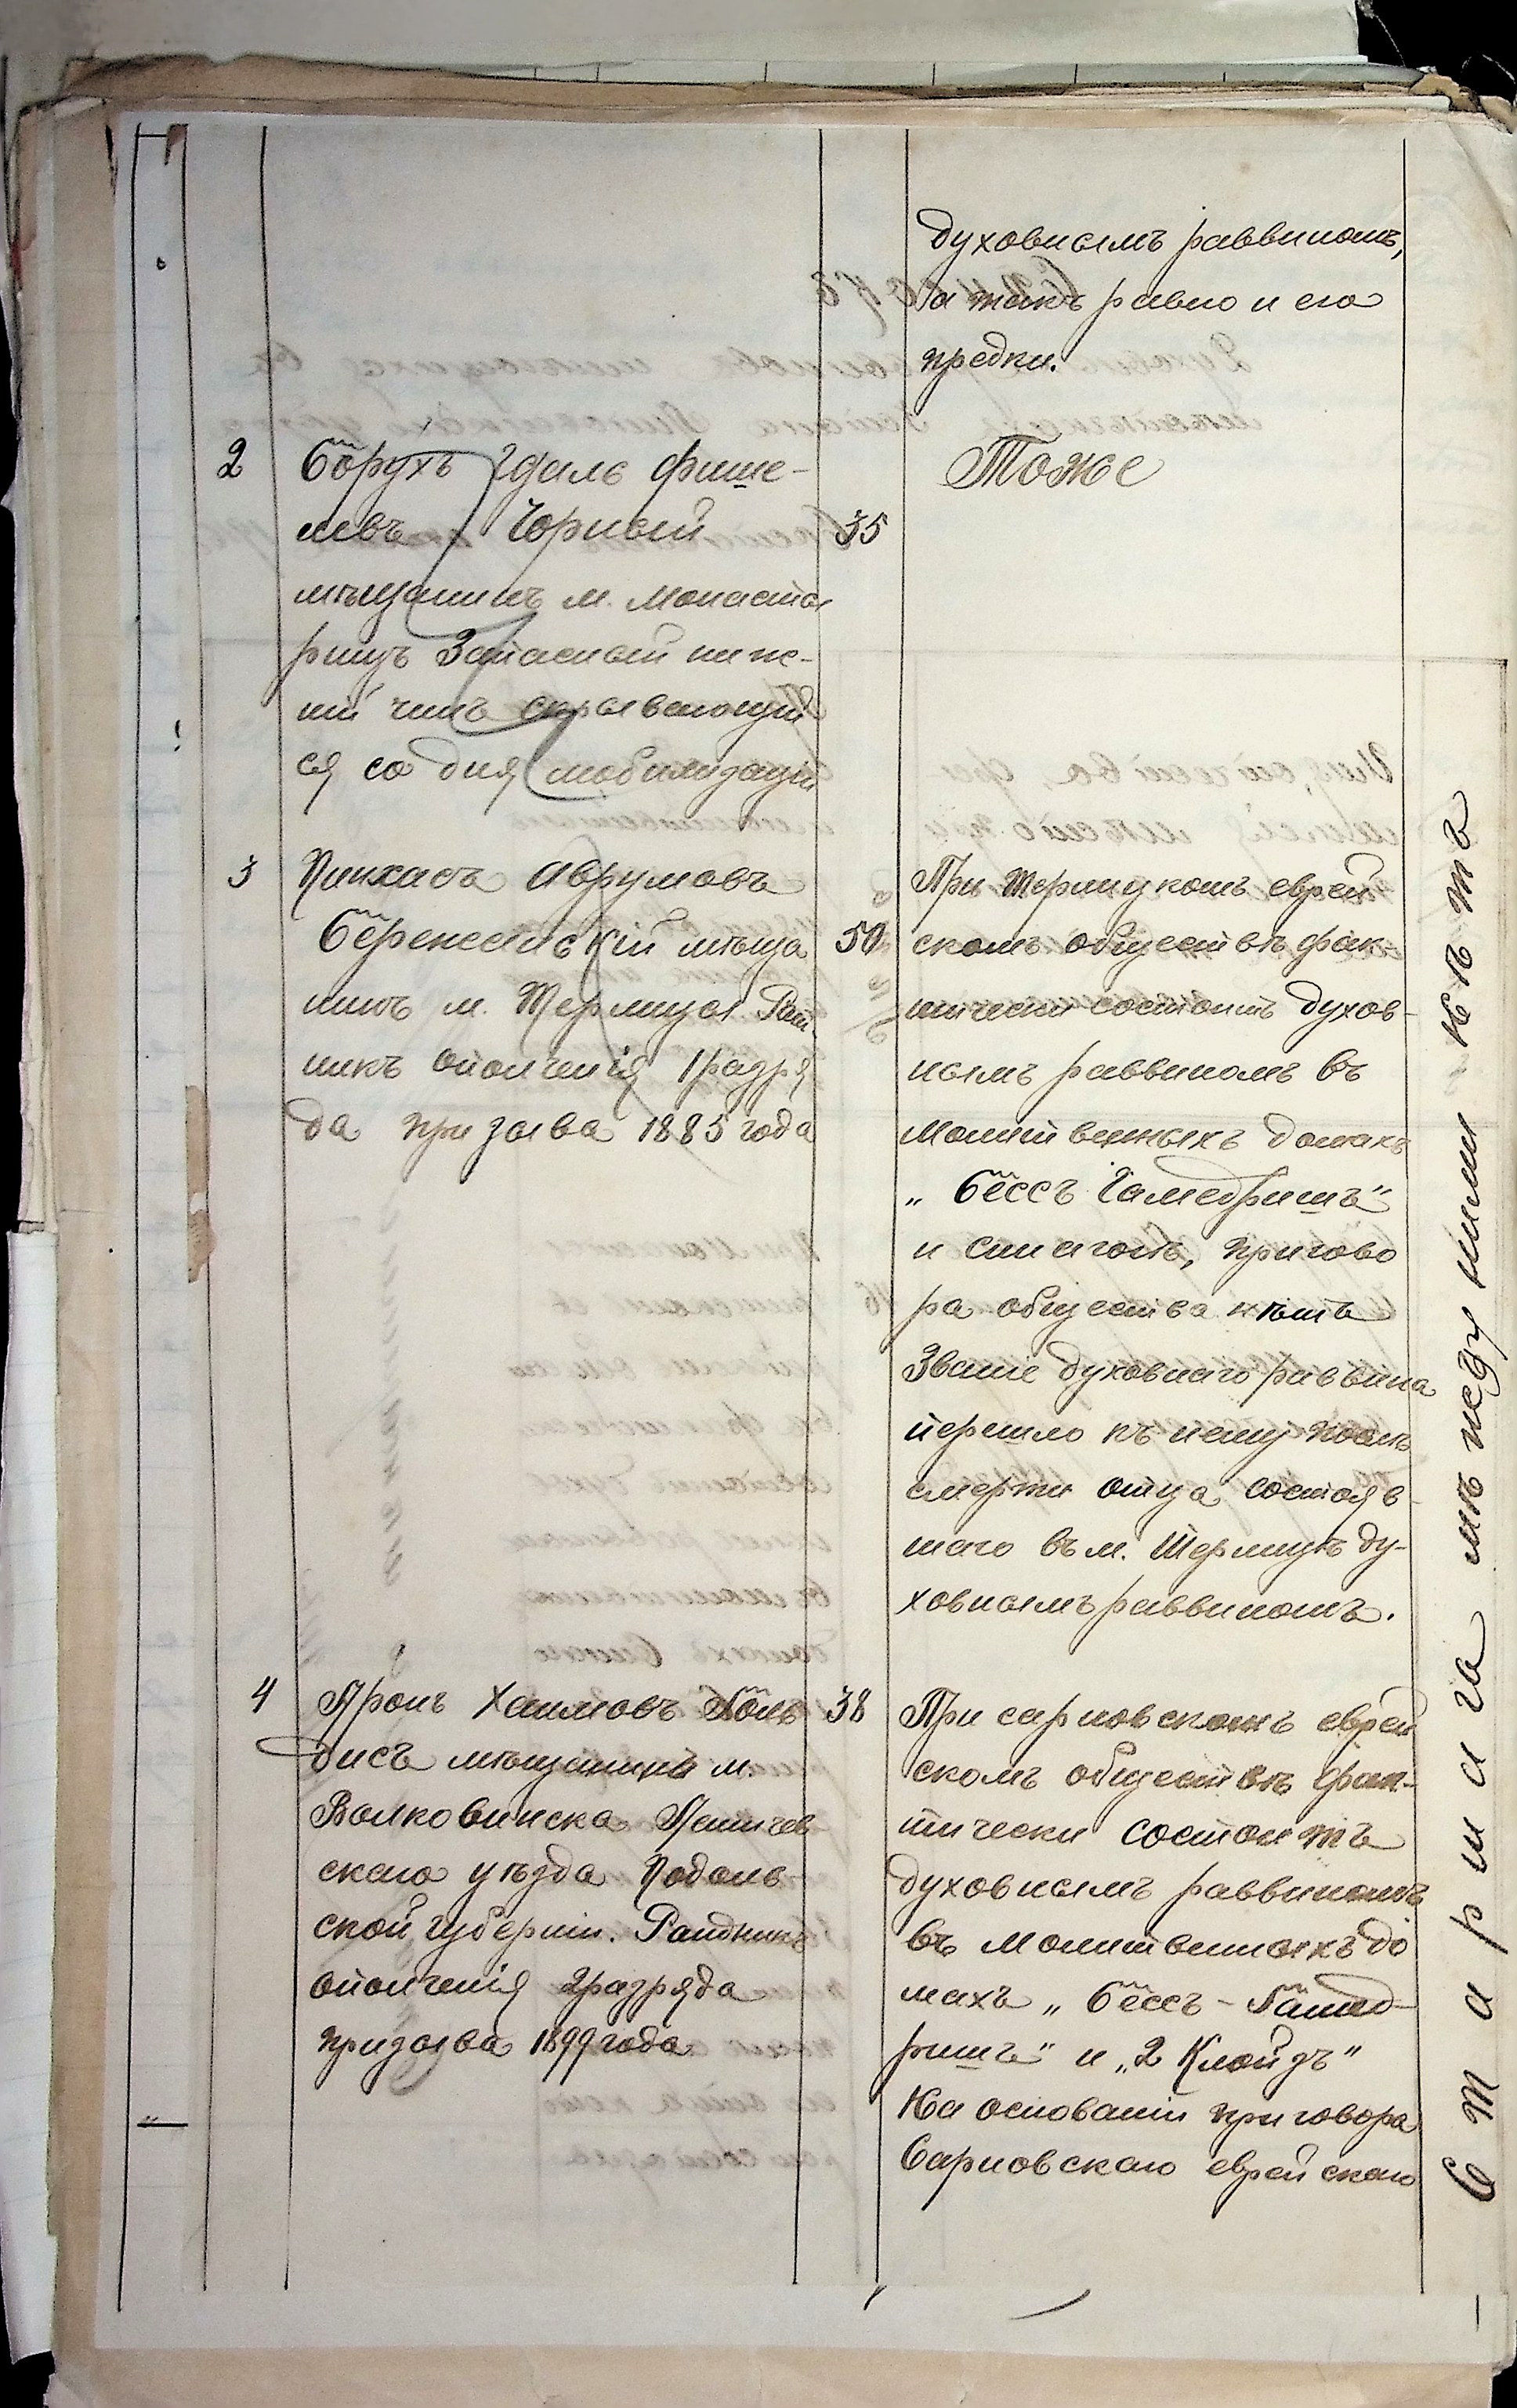 духовнымъ раввиномъ,
а такъ равно и его
предки.
2 Борухъ Гдаль Фише-
левъ Чорный 35 Тоже
мѣщанинъ м. Монасты
рищъ Запасный ниж-
ній чинъ скрывающій
ся со дня мобилизаціи
3 Пинхасъ Аврумовъ
Беренсельскій мѣща 50
нинъ м. Терлицы Рат
никъ ополченія 1 разря
да призыва 1885 года
При Терлицкомъ еврей
скомъ обществѣ фак-
тически состоитъ духов-
нымъ раввиномъ въ
молитвенныхъ домахъ
„Бессъ Гамедришъ"
и синагогѣ, пригово
ра общества нѣтъ
Званіе духовнаго раввина
перешло къ нему послѣ
смерти отца состояв-
шаго въ м. Терлицѣ ду-
ховнымъ раввиномъ.
4 Аронъ Хаимовъ Голь 38
дисъ мѣщанинъ м.
Волковинска Летичев
скаго уѣзда Подоль-
ской губерніи. Ратникъ
ополченія 2 разряда
призыва 1899 года
При сарновскомъ еврей
скомъ обществѣ фак-
тически состоитъ
духовнымъ раввиномъ
въ молитвенныхъ до
махъ „Бессъ-Гамед-
ришъ" и „2 Клойзъ"
На основаніи приговора
Сарновскаго еврейскаго
Старшаго между ними нѣтъ